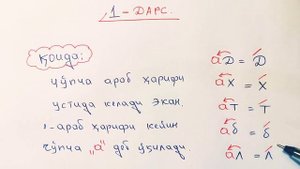 1 - ДАРС.
Қоида:
чўпча араб ҳарфи
устида келади экан.
1 - араб ҳарфи кейин
чўпча „а" деб ўқилади.
аД = Д
аХ = Х
аТ = Т
аб = б
аЛ = Л